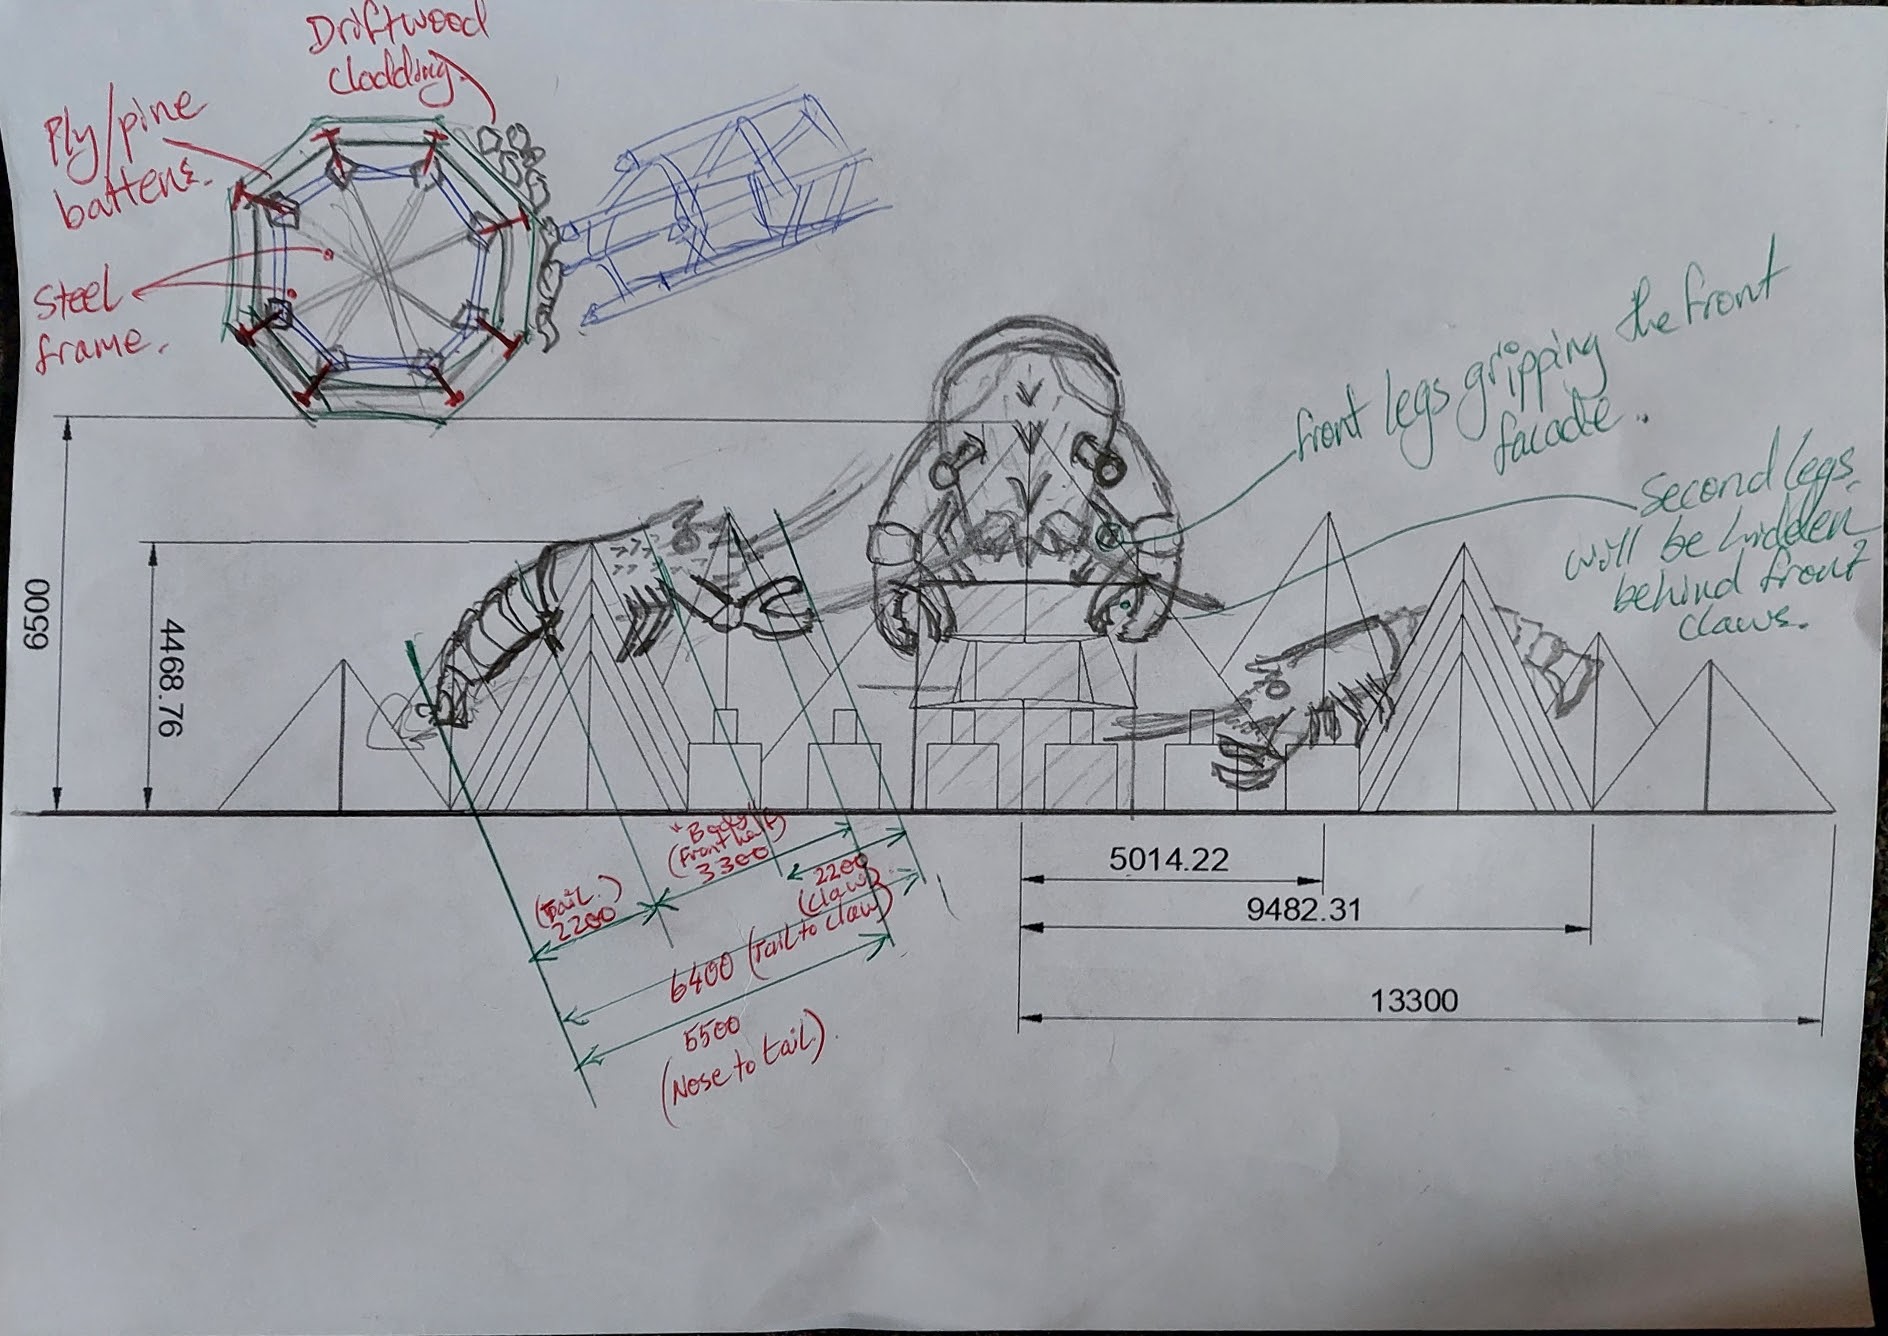 Driftwood
cladding.
Ply/pine
battens.
Steel
frame.
front legs gripping the front
facade..
Second legs
will be hidden
behind front
claws.
6500
4468.76
"Body"
(Front half)
3300
(Tail.)
2200
2200
(Claw)
6400 (Tail to claw)
5500
(Nose to tail).
5014.22
9482.31
13300